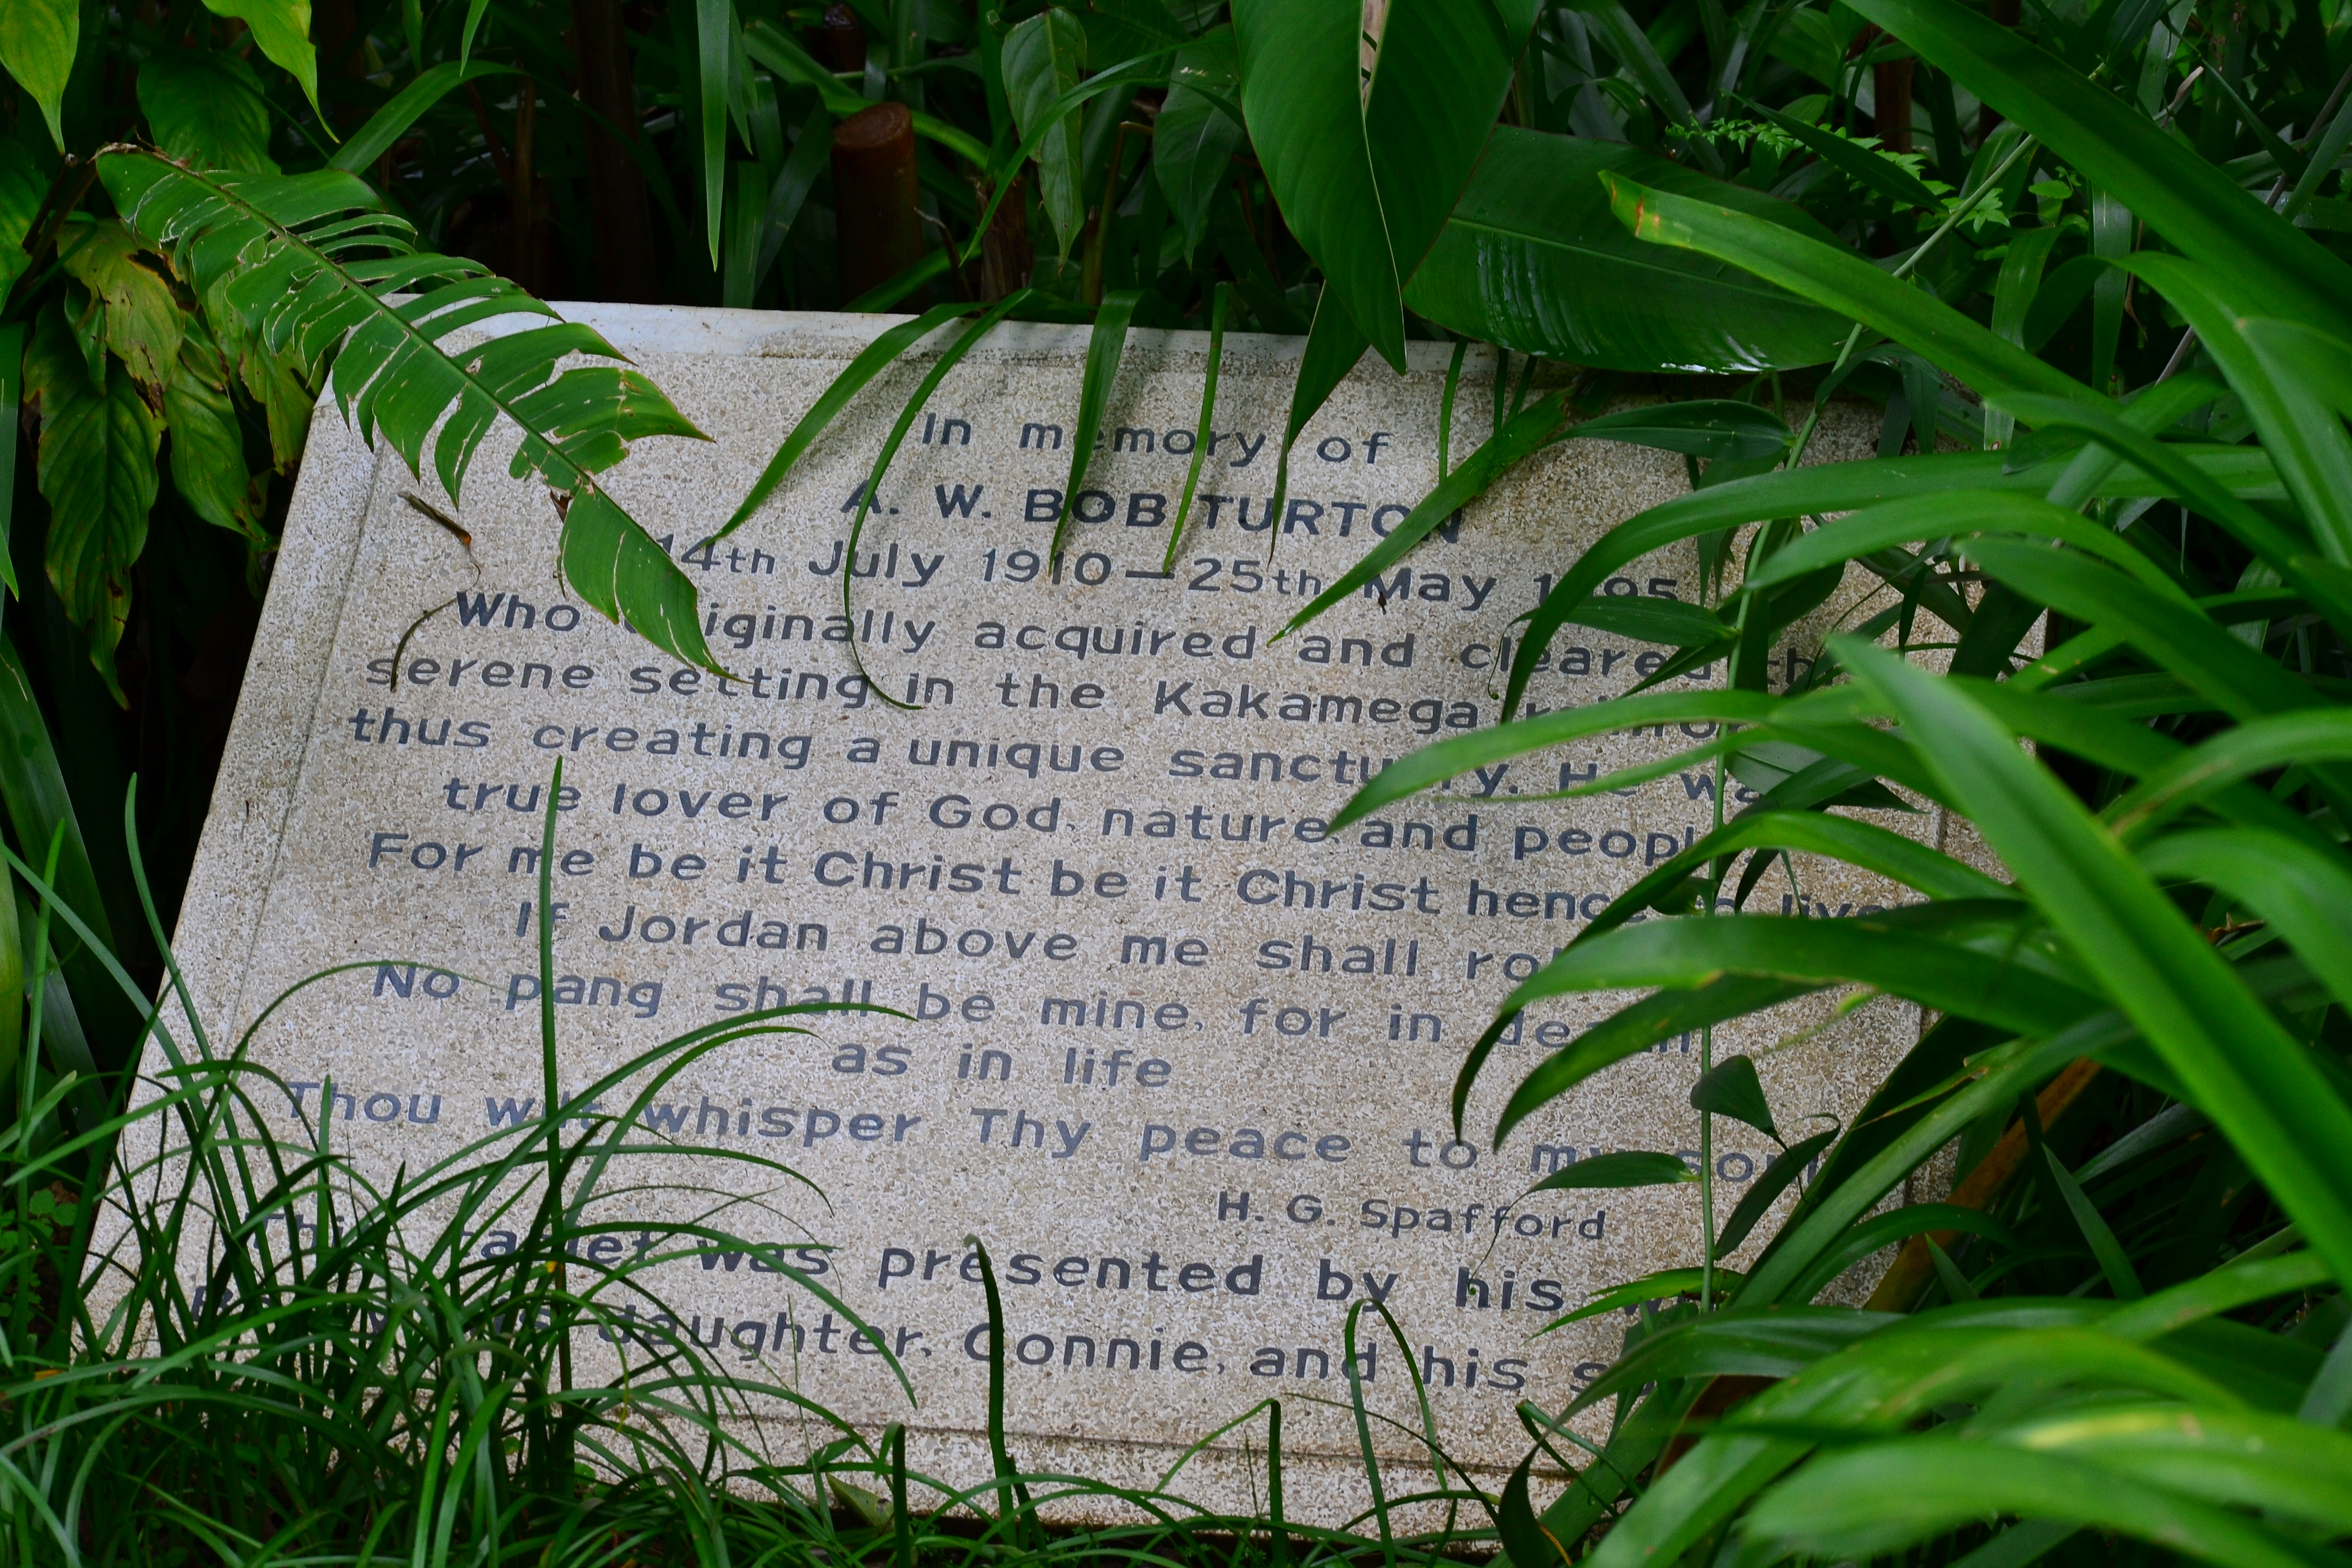 In memory of
A. W. BOB TURTON
14th July 1910 — 25th May
Who originally acquired and cleared
serene setting in the Kakamega
thus creating a unique sanctuary. He was
true lover of God, nature and people
For me be it Christ be it Christ hence to live
If Jordan above me shall roll
No pang shall be mine, for in death
as in life
Thou wilt whisper Thy peace to my soul
H. G. Spafford
This tablet was presented by his
daughter, Connie, and his